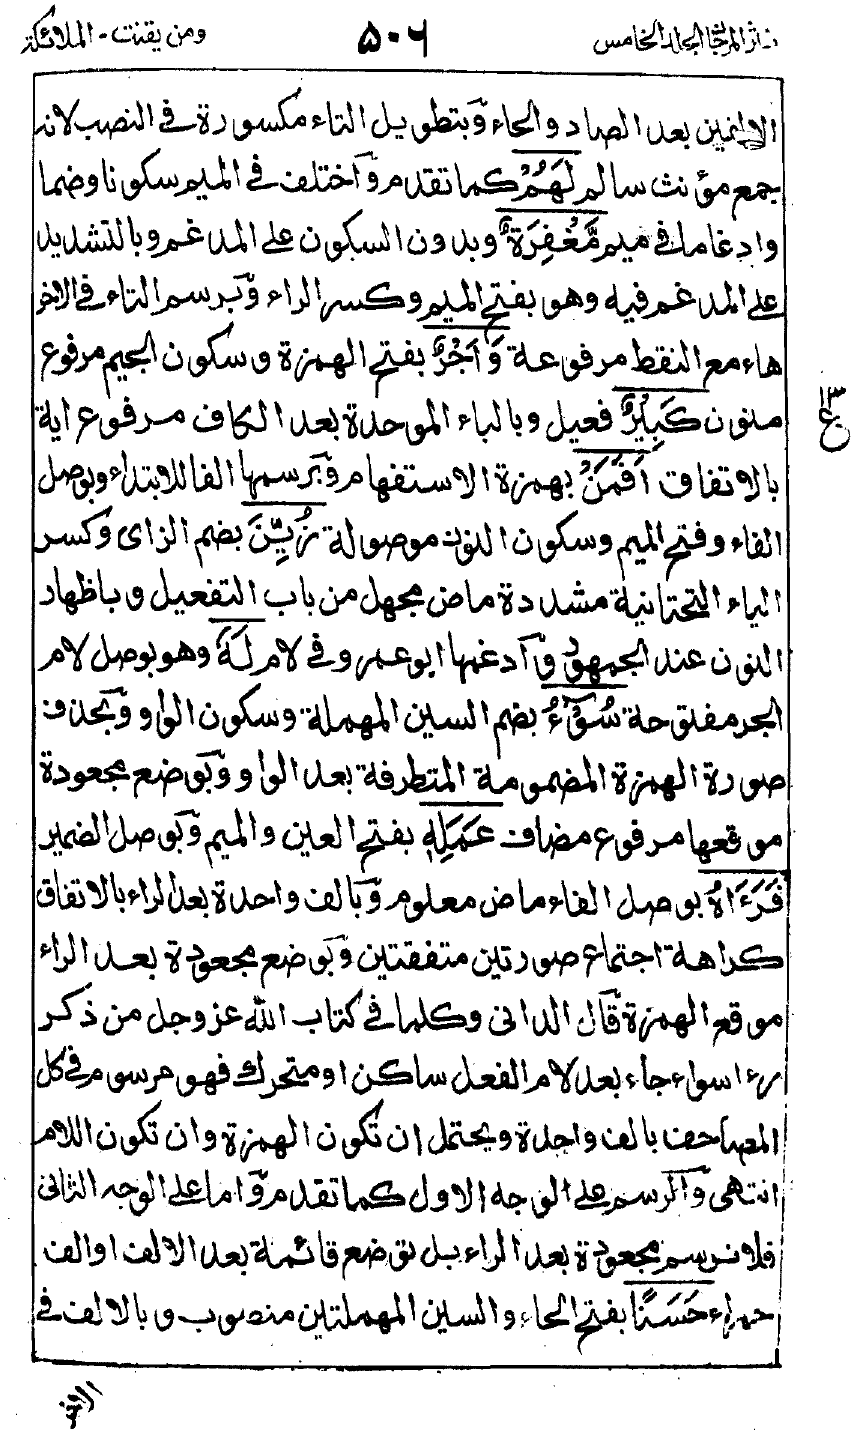 نثر المرجان الجلد الخامس ٥٠٦ ومن يقنت - الملائكة
الالفين بعد الصاد والحاء وبتطويل التاء مكسورة في النصب لانه
جمع مؤنث سالم لَهُمْ كما تقدم واختلف في الميم سكونا وضما
وادغاما في ميم مَّغْفِرَةٌ وبدون السكون على المدغم وبالتشديد
على المدغم فيه وهو بفتح الميم وكسر الراء وبرسم التاء في الاخر
هاء مع النقط مرفوعة وَاَجْرٌ بفتح الهمزة وسكون الجيم مرفوع
منون كَبِيْرٌ فعيل وبالباء الموحدة بعد الكاف مرفوع اية
بالاتفاق اَفَمَنْ بهمزة الاستفهام وبرسمها الفا للابتداء وبوصل
الفاء وفتح الميم وسكون النون موصولة زُيِّنَ بضم الزاى وكسر
الياء التحتانية مشددة ماض مجهل من باب التفعيل وباظهار
النون عند الجمهور وادغمها ابو عمرو في لام لَهٗ وهو بوصل لام
الجر مفتوحة سُوْٓءُ بضم السين المهملة وسكون الواو وبحذف
صورة الهمزة المضمومة المتطرفة بعد الواو وبوضع مجعودة
موقعها مرفوع مضاف عَمَلِهٖ بفتح العين والميم وبوصل الضمير
فَرَءَاهُ بوصل الفاء ماض معلوم وبالف واحدة بعد الراء بالاتفاق
كراهة اجتماع صورتين متفقتين وبوضع مجعودة بعد الراء
موقع الهمزة قال الدانى وكلما في كتاب الله عز وجل من ذكر
رءا سواء جاء بعد لام الفعل ساكن او متحرك فهو مرسوم في كل
المصاحف بالف واحدة ويحتمل ان تكون الهمزة وان تكون اللام
انتهى والرسم على الوجه الاول كما تقدم واما على الوجه الثانى
فلا نرسم مجعودة بعد الراء بل توضع قائمة بعد الالف او الف
حمراء حَسَنًا بفتح الحاء والسين المهملتين منصوب وبالالف في
١٣
ع